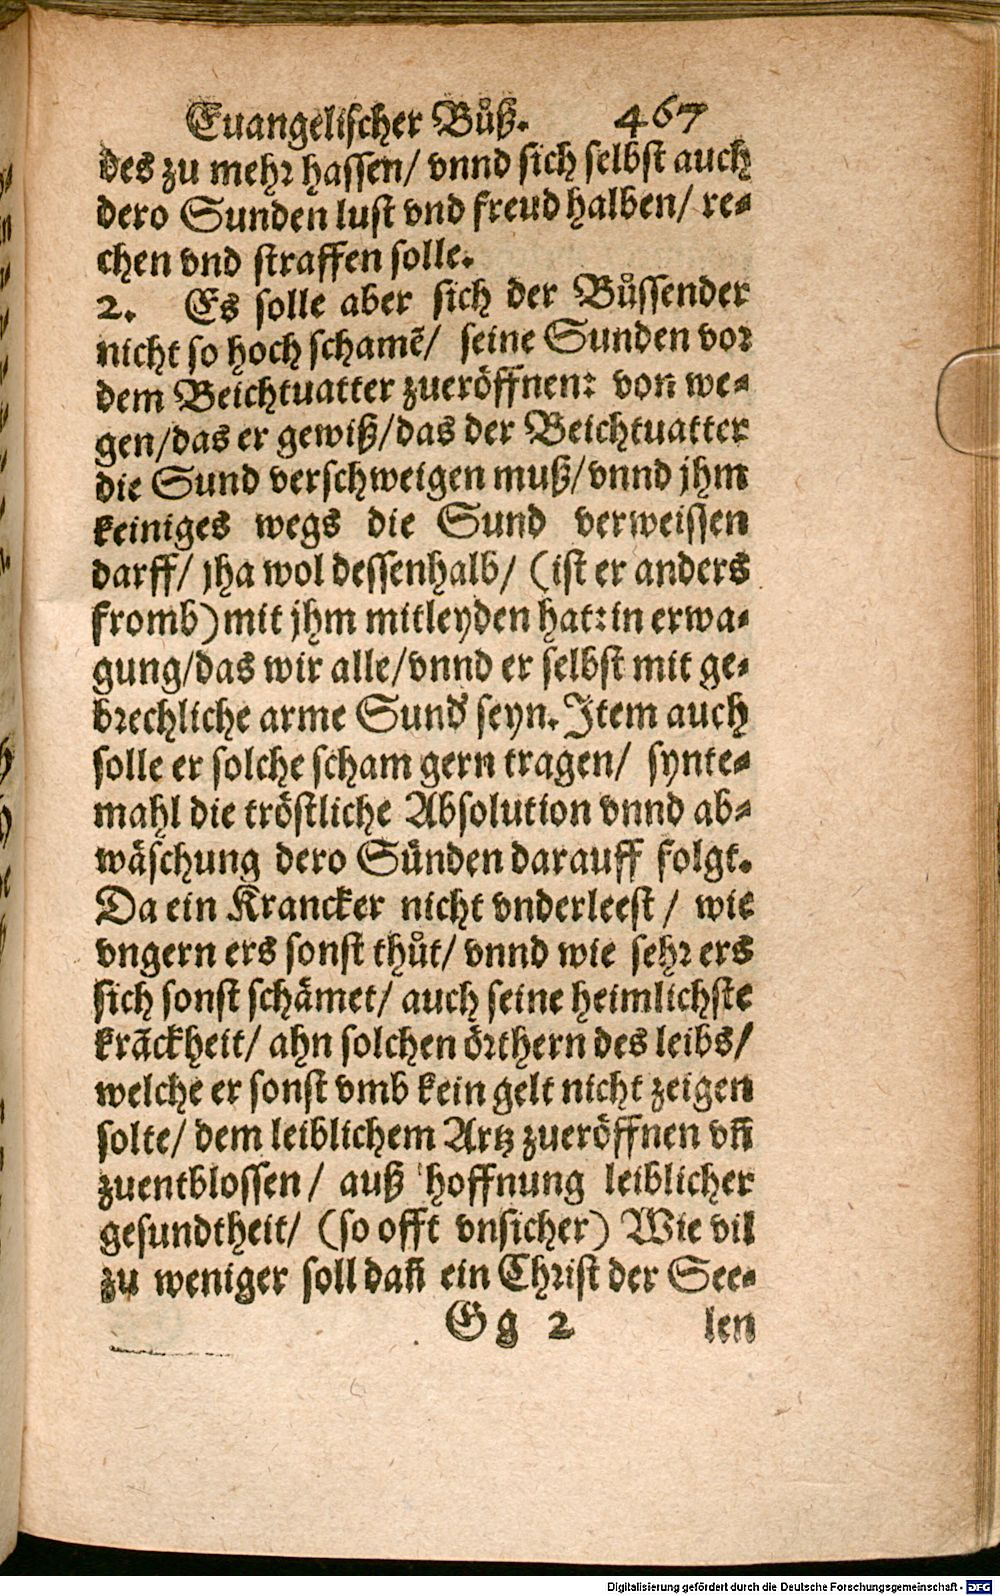 Euangelischer Bůß. 467
des zu mehr hassen/ vnnd sich selbst auch
dero Sunden lust vnd freud halben/ re-
chen vnd straffen solle.
2. Es solle aber sich der Bůssender
nicht so hoch schamẽ/ seine Sunden vor
dem Beichtuatter zueröffnen: von we-
gen/das er gewiß/das der Beichtuatter
die Sund verschweigen muß/vnnd jhm
keiniges wegs die Sund verweissen
darff/ jha wol dessenhalb/ (ist er anders
fromb) mit jhm mitleyden hat: in erwa-
gung/das wir alle/vnnd er selbst mit ge-
brechliche arme Sund' seyn. Item auch
solle er solche scham gern tragen/ synte-
mahl die tröstliche Absolution vnnd ab-
wäschung dero Sünden darauff folgt.
Da ein Krancker nicht vnderleest / wie
vngern ers sonst thůt/ vnnd wie sehr ers
sich sonst schämet/ auch seine heimlichste
krãckheit/ ahn solchen örthern des leibs/
welche er sonst vmb kein gelt nicht zeigen
solte/ dem leiblichem Artz zueröffnen vñ
zuentblossen/ auß hoffnung leiblicher
gesundtheit/ (so offt vnsicher) Wie vil
zu weniger soll dañ ein Christ der See-
Gg 2 len
Digitalisierung gefördert durch die Deutsche Forschungsgemeinschaft - DFG